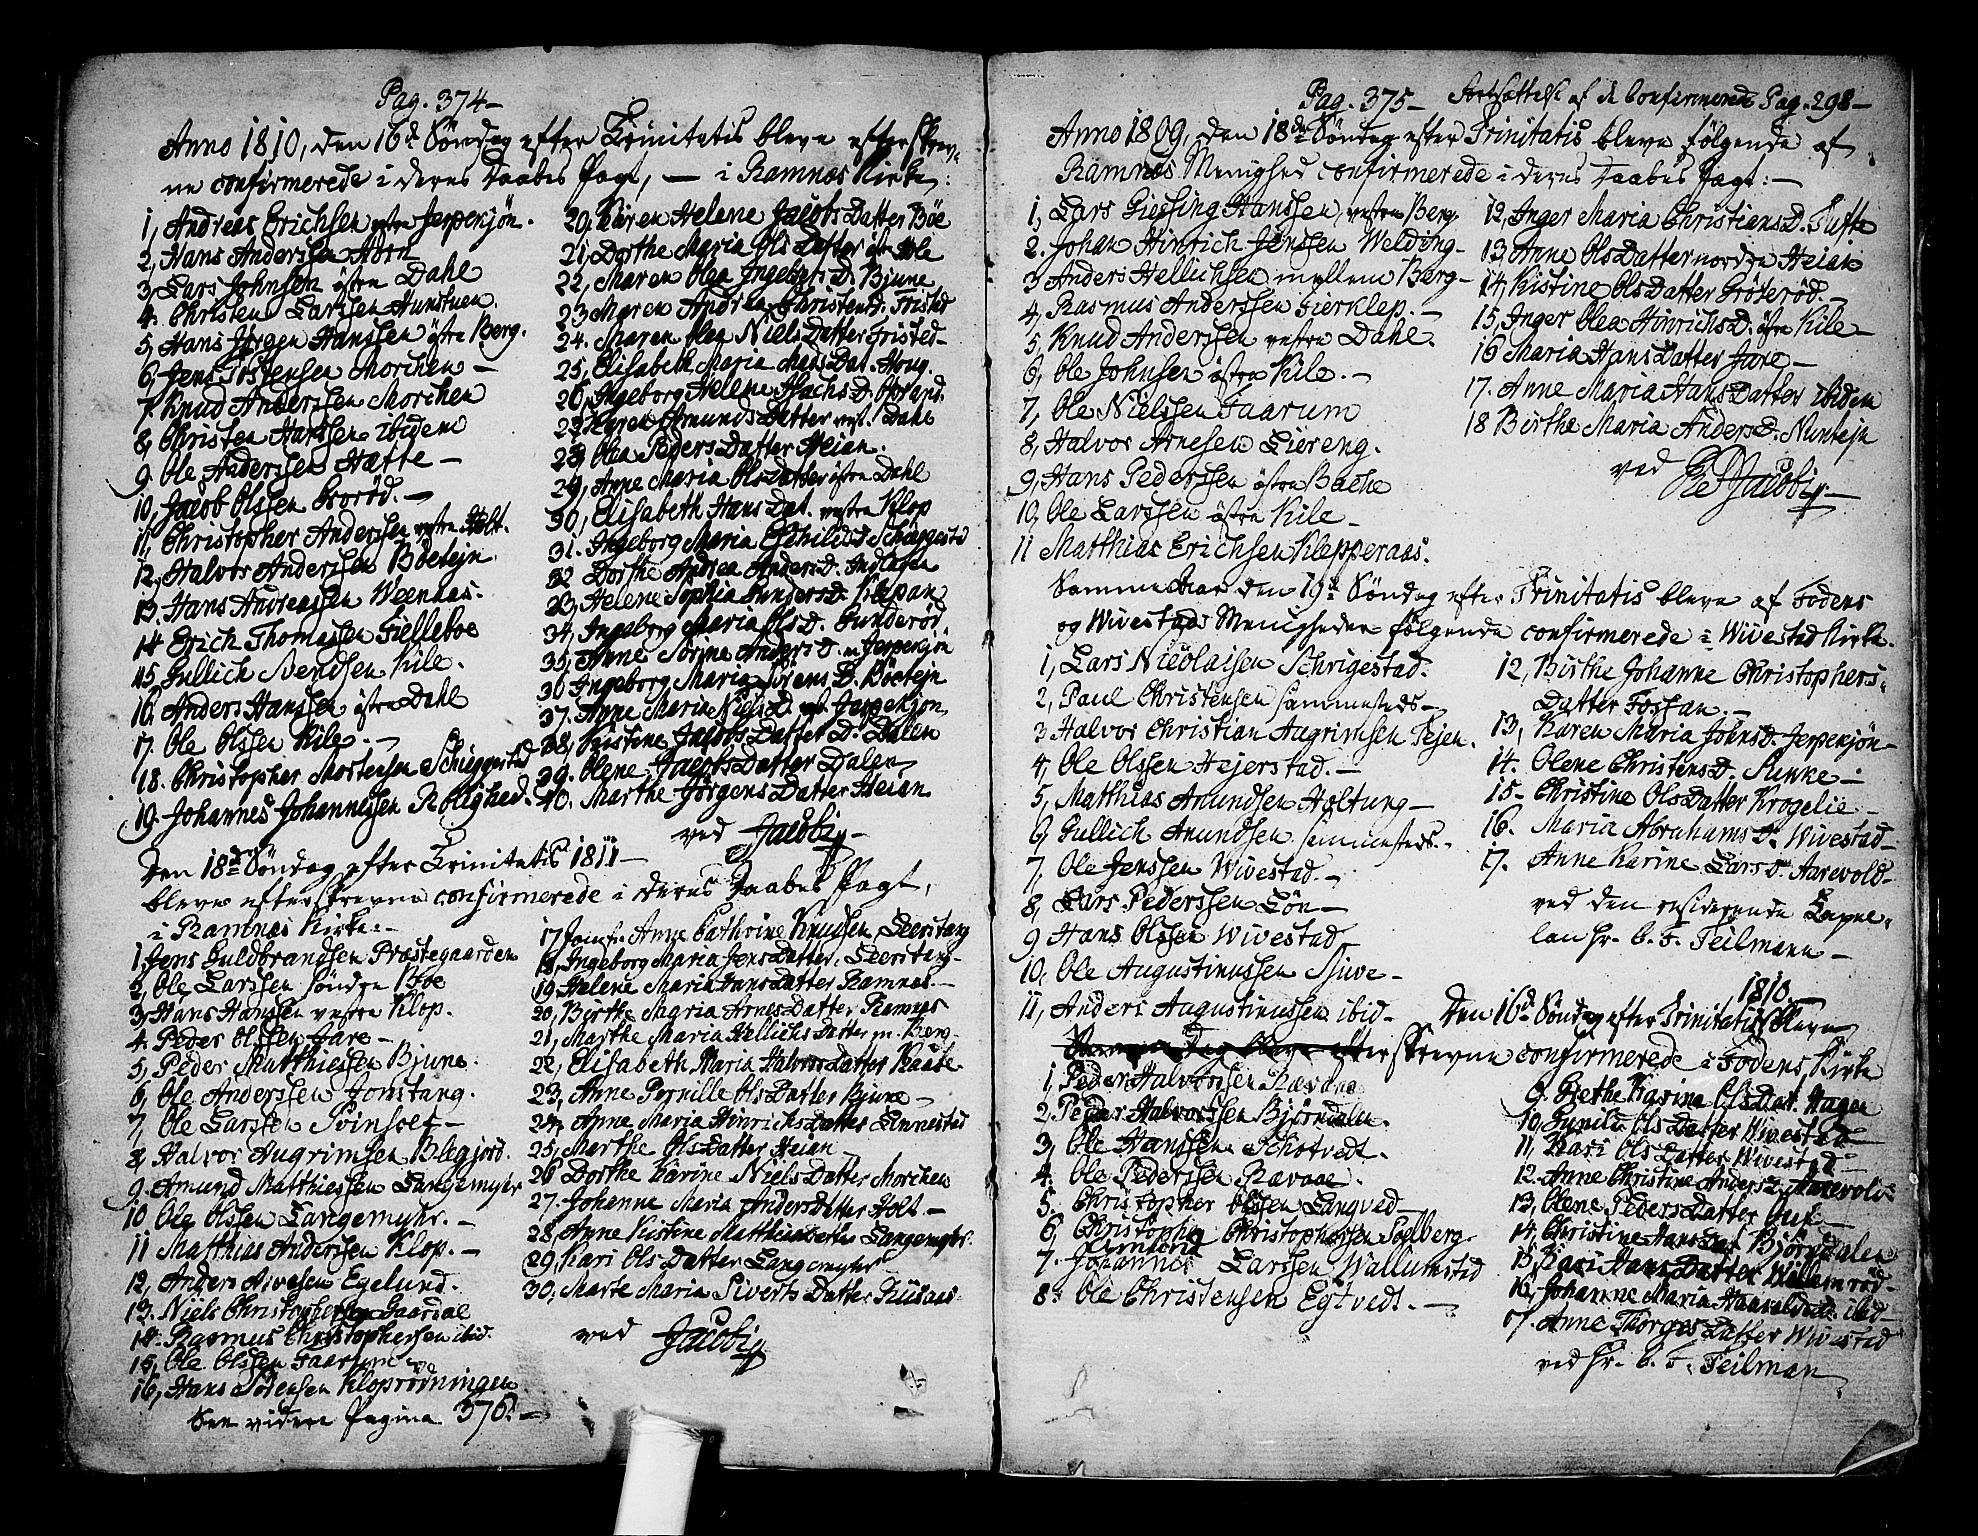 Pag. 374-
Anno 1810, den 16de Søndag efter Trinitatis bleve efterskrev-
ne confirmerede i deres Daabes Pagt, — i Ramnæs Kirke:
1, Andreas Erichsen østre Jerpekjøn.
2, Hans Anderssen Horn
3, Lars Johnsen østre Dahl
4. Christen Larssen Hunstuen.
5, Hans Jørgen Hanssen østre Berg.
6, Jens Tostensen Morchen —
7. Knud Anderssen Morchen
8, Christen Hanssen ibidem
9. Ole Anderssen Hætte —
10, Jacob Olssen Gorød. —
11, Christopher Anderssen vestre Holt.
12, Halvor Anderssen Bøetejn
13. Hans Andreassen Weenaas.
14 Erich Thomassen Gielleboe
15, Gullich Svendsen Kile.
16, Anders Hanssen østre Dahl
17. Ole Olssen Kile. —
18. Christopher Mortensen Schieggestad
19. Johannes Johannessen Rolighed.
20, Karen Helene Jacobs Datter Bøe
21, Dorthe Maria Ols Datter
22, Maren Olea Ingebers D. Bjune
23 Maren Andrea Christens D. Fristad
24. Maren Olea Niels Datter Fristed-
25, Elisabeth Maria Mads Dat. Houg.
26, Ingeborg Helene Isachs D.
27, Karen Amunds Datter vest. Dahl
28, Olea Peders Datter Heian.
29, Anne Maria Ols Datter østre Dahl
30, Elisabeth Hans Dat. vestre Klop
31. Ingeborg Maria Eschilds D. Schieggestd
32 Dorthe Andrea Anders D. Indlagen
33, Helene Sophia Gunders D. Klepan
34, Ingeborg Maria Ols D. Gunderød
35, Anne Sørine Anders D. Jerpekjøn
36 Ingeborg Maria Sørens D. Bøetejn
37. Anne Maria Niels D. Jerpekjøn
38, Kistine Jacobs Datter D. Dalen
39. Olene Jacobs Datter Dalen
40. Marthe Jørgens Datter Heian
ved Jacobi
Den 18de Søndag efter Trinitatis 1811-
bleve efterskrevne confirmerede i deres Daabes Pagt,
i Ramnæs Kirke:-
1, Jens Guldbrandsen Præstegaarden
2, Ole Larssen søndre Bøe
3, Hans Hanssen vestre Klop.
4. Peder Olssen Fare-
5, Peder Matthiessen Bjune.
6, Ole Anderssen Jonstang.
7, Ole Larssen Svinholt-
8, Halvor Augrimsen Blegjord.
9. Amund Matthiessen Langemyhr
10 Ole Olssen Langemyhr. —
11 Matthias Anderssen Klop. —
12, Anders Aivesen Egelund.
13. Niels Christophersen Gaardal
14. Rasmus Christophersen ibid.
15, Ole Olssen Faarum
16, Hans Sørensen Kloprødningen
See videre Pagina 376. —
17 Jomfr. Anne Cathrine Knudsen Leerstang
18, Ingeborg Maria Jens Datter, Leerstang-
19. Helene Maria Hans Datter Ramnæs. —
20, Birthe Maria Arnes Datter Ramnæs
21, Marthe Maria Hellichs Datter m. Berg-
22, Elisabeth Maria Halvors Datter
23, Anne Pernille Ols Datter Bjune —
24. Anne Maria Hinrichs Datter Linnestad
25, Marthe Ols Datter Heian
26 Dorthe Karine Niels Datter Morchen
27. Johanne Maria Anders Datter Holt. —
28, Anne Kistine Matthias Datter Langemyhr.
29, Kari Ols Datter Langemyhr
30, Marte Maria Siverts Datter
ved Jacobi
Pag. 375- Fortsættelse af de Confirmerede Pag. 298-
Anno 1809, den 18de Søndag efter Trinitatis bleve følgende af
Ramnæs Menighed confirmerede i deres Daabes Pagt: —
1, Lars Giessing Hanssen, vestre Berg
2. Johan Hinrich Jenssen Welding-
3 Anders Hellichsen mellem Berg-
4, Rasmus Anderssen Gierklep. —
5. Knud Anderssen vestre Dahl.
6, Ole Johnsen østre Kile. —
7, Ole Nielssen Faarum
8, Halvor Arnesen Liereng.
9, Hans Pederssen østre Bache
10, Ole Larssen østre Kile —
11 Matthias Erichsen Klepperaas.
12, Inger Maria Christians D. Tufte
13, Anne Ols Datter nordre Heian
14, Kistine Ols Datter Grøterød. —
15, Inger Olea Hinrichs D. østre Kile —
16 Maria Hans Datter Fare —
17. Anne Maria Hans Datter ibidem
18 Birthe Maria Anders D.
ved Jacobi
Samme Aar den 19de Søndag efter Trinitatis bleve af Fodens
og Wivestads Menigheder følgende confirmerede i Wivestad Kirke.
1, Lars Nicolaisen Schrigestad.
2, Paul Christensen sammesteds-
3 Halvor Christian Augrimsen Tejen.
4, Ole Olssen Hejerstad. —
5, Matthias Amundsen Holtung —
6, Gullich Amundsen sammesteds. -
7. Ole Jenssen Wivestad. —
8, Lars Pederssen Løn —
9 Hans Olssen Wivestad
10, Ole Augustinussen Sjuve —
11, Anders Augustinussen ibid-
12, Birthe Johanne Christophers-
Datter Fossan. —
13, Karen Maria Johns D. Jerpekjøn-
14. Olene Christens D. Runke —
15- Christine Ols Datter Krogelie —
16. Maria Abrahams D. Wivestad-
17. Anne Karine Lars D. Aarevold-
ved den residerende Capel-
lan hr. C. F. Teilmann —
1810.
Den 16de Søndag efter Trinitatis bleve
efterskrevne confirmerede i Fodens Kirke
1, Peder Halvorssen
2, Peder Halvorssen Bjørndalen.
3, Ole Hanssen Schotvedt.
4. Ole Pederssen Ravaae.
5. Christopher Olssen Langved-
6, Christopher Christophersen Solberg.
7. Johannes Larssen Wallumstad
8. Ole Christensen Egtvedt. —
9. Grethe Karina Ols Dat. Hagen
10, Gunild Ols Datter Wivestad
11, Kari Ols Datter Wivestad
12. Anne Christine Anders D. Aarevold
13, Olene Peders Datter Juf —
14, Christine Hans Dat Bjørndalen
15, Kari Hans Datter Willemrød-
16, Johanne Maria ibid-
17. Anne Thorges Datter Wivestad
ved hr. C. F. Teilman